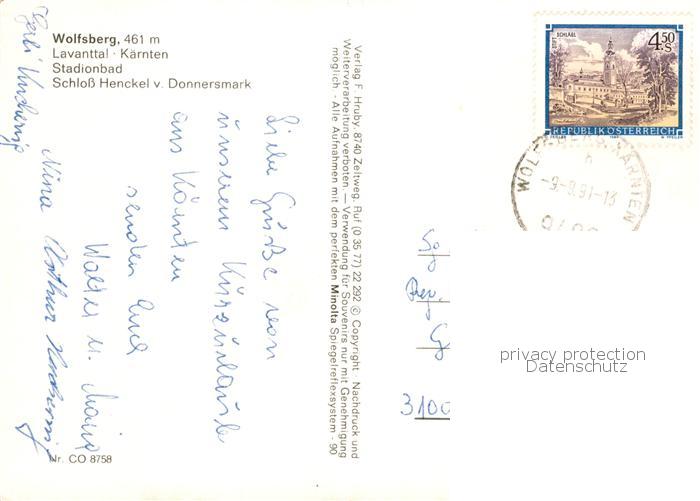 Wolfsberg, 461 m
Lavanttal · Kärnten
Stadionbad
Schloß Henckel v. Donnersmark
Liebe Grüße von
unserem Kurzurlaub
aus Kärnten
senden Euch
Walter u.
Nina
Nr. CO 8758
Verlag F. Hruby, 8740 Zeltweg, Ruf (0 35 77) 22 292 © Copyright · Nachdruck und
Weiterverarbeitung verboten. — Verwendung für Souvenirs nur mit Genehmigung
möglich. - Alle Aufnahmen mit dem perfekten Minolta Spiegelreflexsystem - 90
STIFT SCHLÄGL
4.50 S
REPUBLIK ÖSTERREICH
WOLFSBERG, KÄRNTEN
-9.-9.91-13
3100
privacy protection
Datenschutz